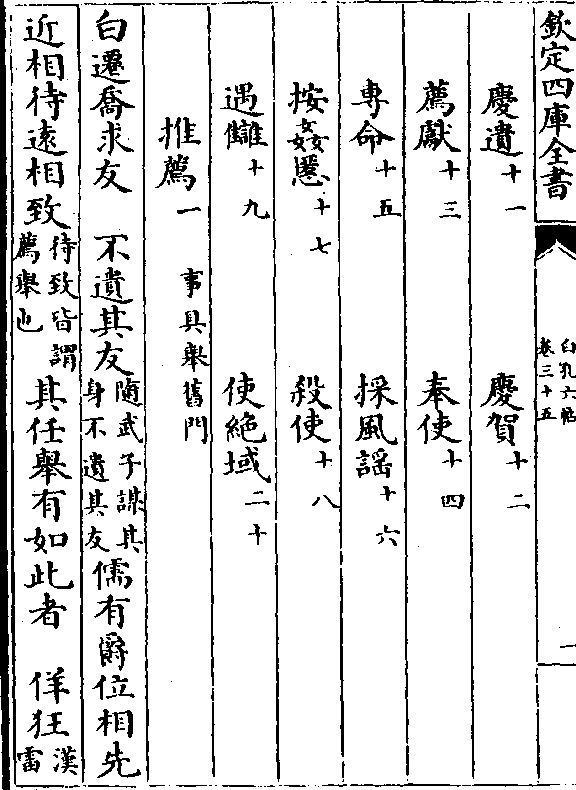 欽定四庫全書
白孔六帖
卷三十五
一
慶遺十一 慶賀十二
薦獻十三 奉使十四
専命十五 採風謡十六
按姦慝十七 殺使十八
遇讎十九 使絶域二十
推薦一 事具舉舊門
白遷喬求友 不遺其友隨武子謀其身不遺其友儒有爵位相先
近相待遠相致待致皆謂薦舉也其任舉有如此者 佯狂漢雷